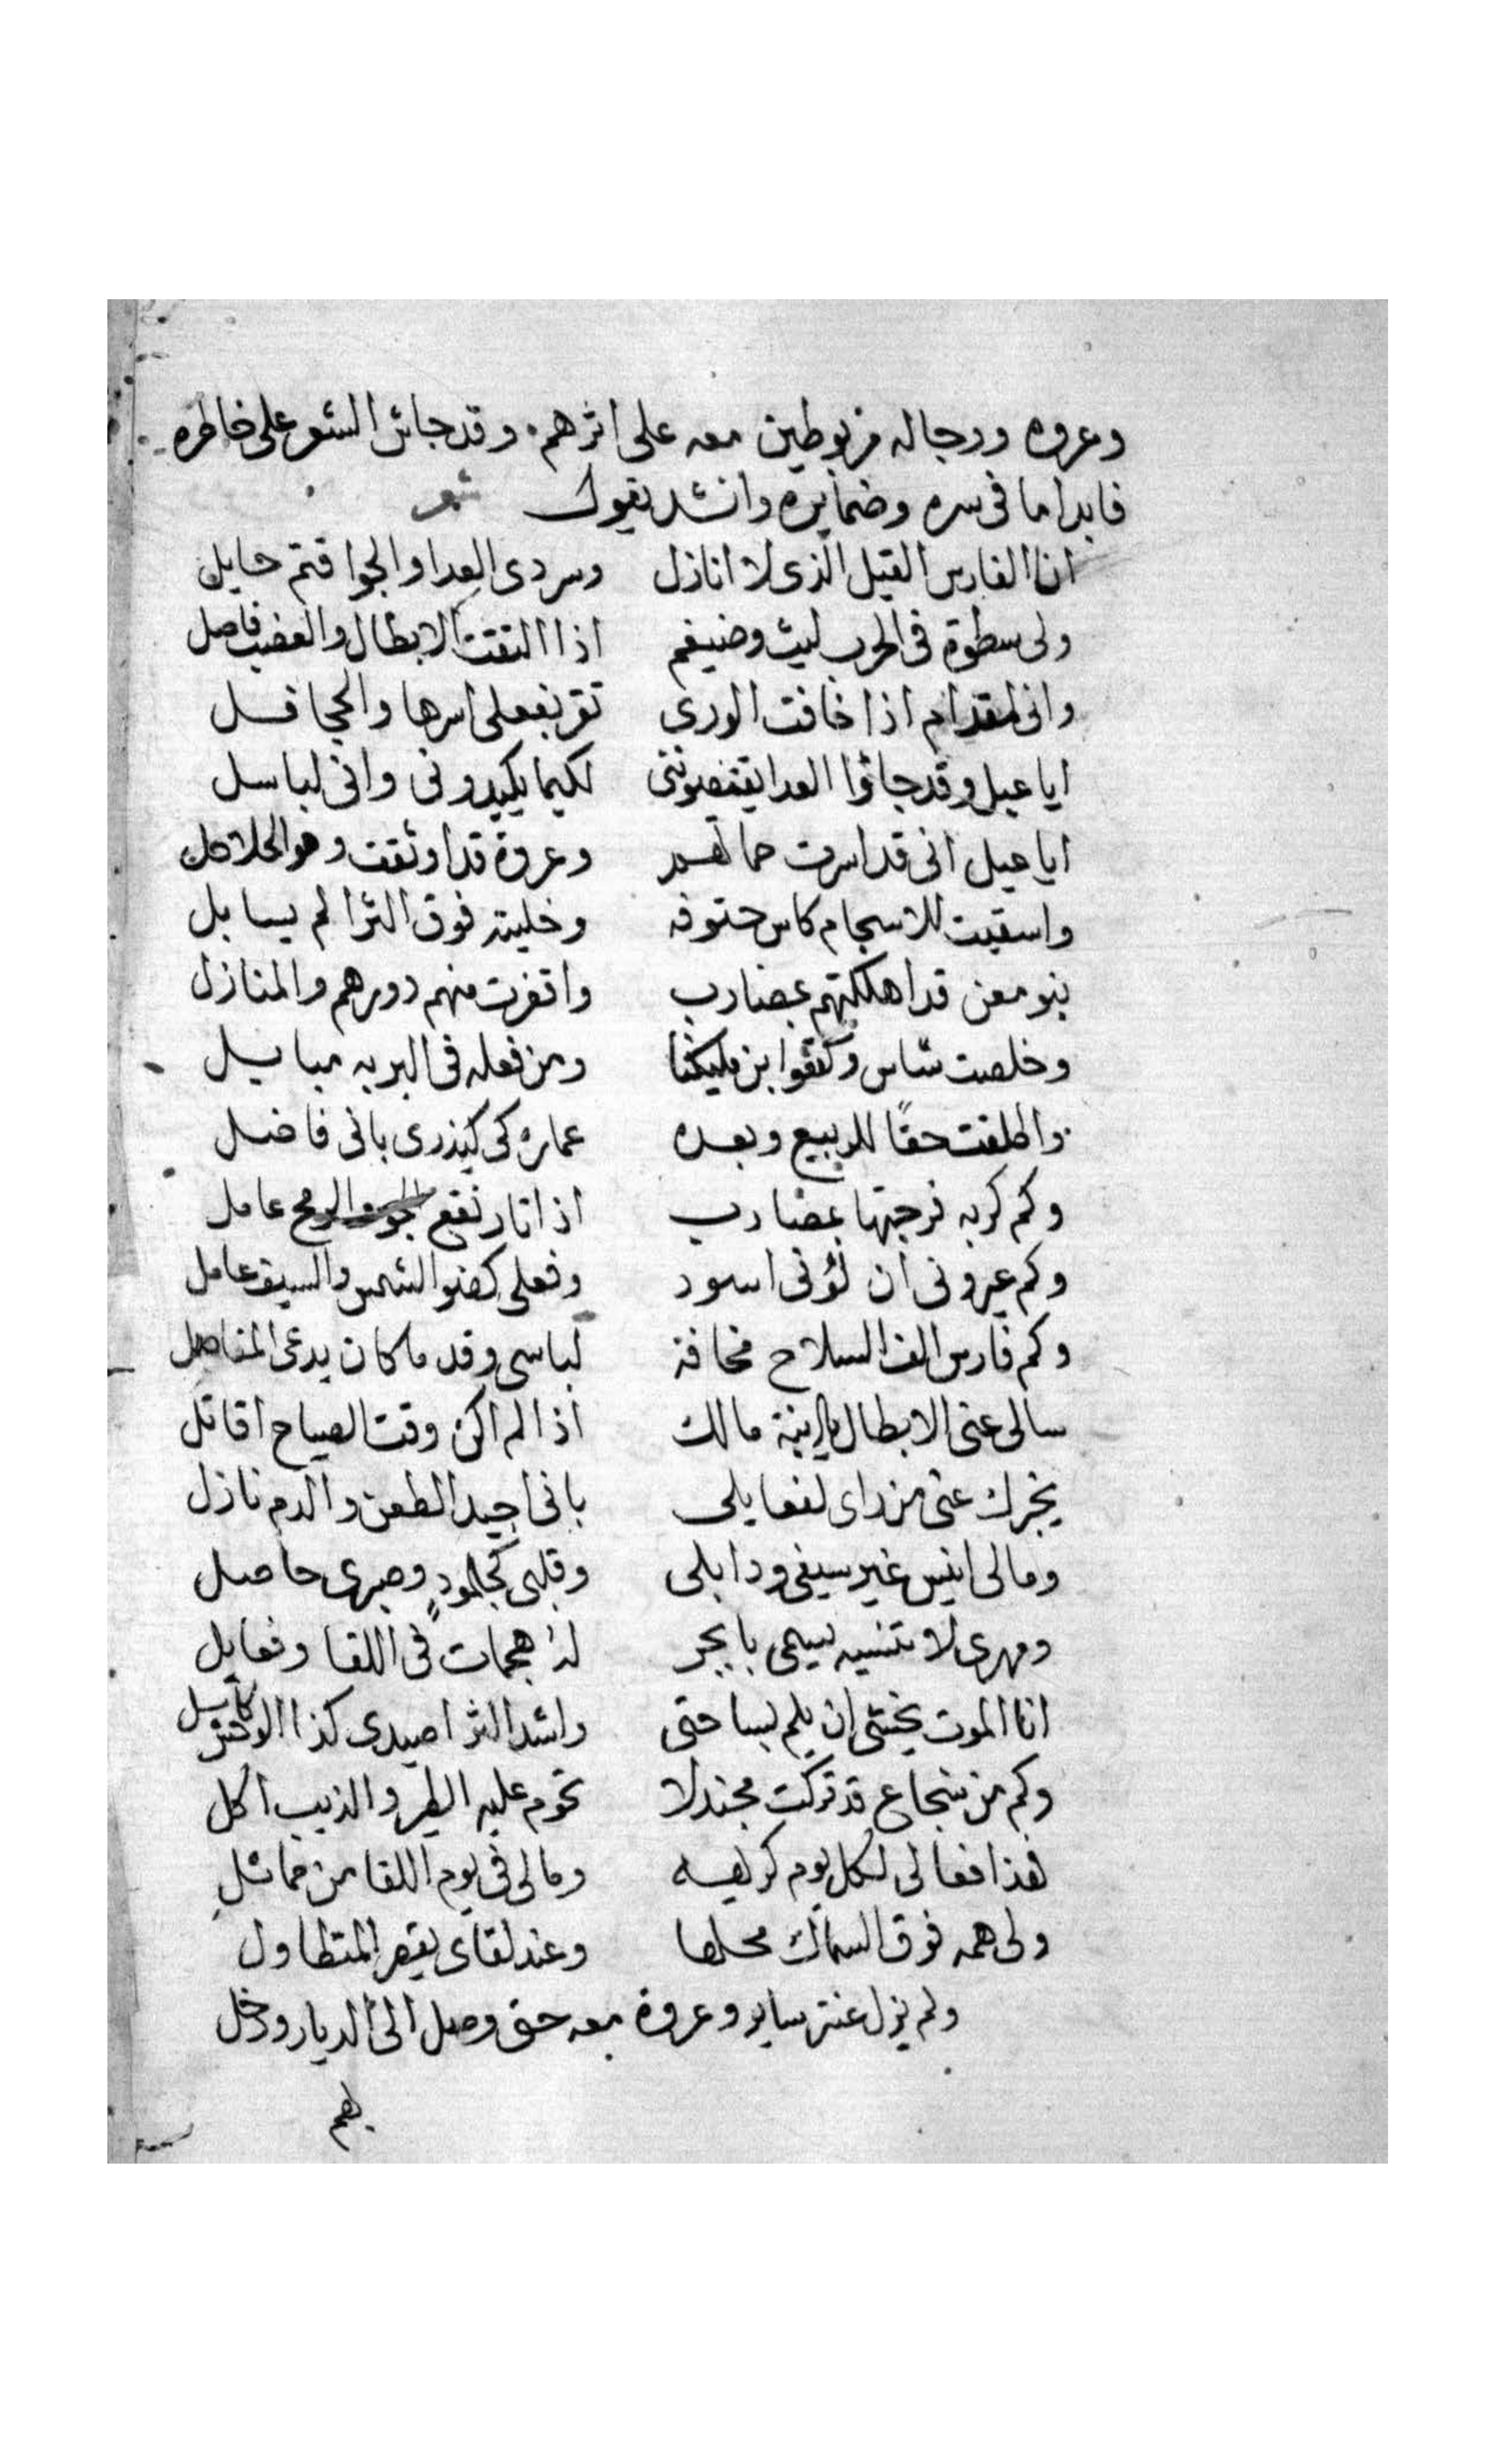 وعروه ورجاله مربوطين معه على اثرهم. وقد جاش الشعر على خاطره
فابدا ما فى سره وضمايره وانشد يقول شعر
انا الفارس القيل الذى لا انازل وسردى العدا والجوا قتم حايل
ولى سطوة فى الحرب ليث وضيغم اذا التقت الابطال والعضب فاصل
وانى لمقدام اذا خافت الورى تقر بفعلى اسرها والجحافل
ايا عبل وقد جاؤا العدا يقنصوننى لكيما يكيدونى وانى لباسل
ايا عبل انى قد اسرت حماتهم وعروة قد اوثقت وهو الحلاحل
واسقيت للاسجام كاس حتوفه وخليته فوق الثرا لم يسايل
بنو معن قد اهلكتهم بمضارب واقفرت منهم دورهم والمنازل
وخلصت شاس وكفوا بن مليكنا ومن فعله فى البريه مبايل
واطلقت حقًا للربيع وبعده عماره كى يذرى بانى فاضل
وكم كربه فرجتها بمضارب اذا ثار نقع والرمح عامل
وكم عيرونى ان لونى اسود وفعلى كضو الشمس والسيف عامل
وكم فارس الف السلاح مخافة لباسى وقد ما كان يدعى المناصل
سالى عنى الابطال يا ابنة مالك اذا لم اكن وقت الصياح اقاتل
يخبرك عنى من راى لفعايلى بانى اجيد الطعن والدم نازل
ومالى انيس غير سيفى ودابلى وقلبى كجلمودٍ وصبرى حاصل
ومهرى لا تنسيه يسمى بابجر له هجمات فى اللقا وفعايل
انا الموت يخشى ان يلم بساحتى واشد الثرا صيدى كذا الوحش كاسل
وكم من شجاع قد تركت مجندلا تحوم عليه الطير والذيب اكل
فهذا فعالى لكل يوم كريهه ومالى فى يوم اللقا من مماثل
ولى همه فوق السماك محلها وعند لقاى يقصر المتطاول
ولم يزل عنتر ساير وعروة معه حتى وصل الى الديار ودخل
بهم